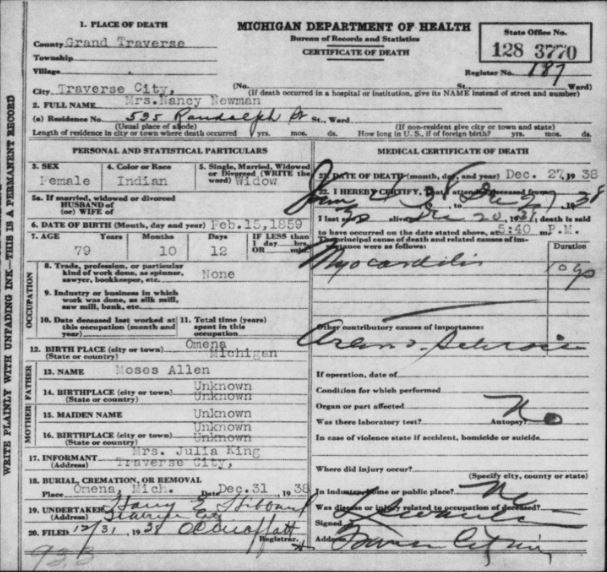 1. PLACE OF DEATH
County Grand Traverse
Township
Village
City Traverse City,
MICHIGAN DEPARTMENT OF HEALTH
Bureau of Records and Statistics
CERTIFICATE OF DEATH
State Office No.
128 3770
Register No. 187
(No. St., Ward)
(If death occurred in a hospital or institution, give its NAME instead of street and number)
2. FULL NAME Mrs.Nancy Newman
(a) Residence No. 535 Randolph St St., Ward
(Usual place of abode) (If non-resident give city or town and state)
Length of residence in city or town where death occurred yrs. mos. ds. How long in U. S., if of foreign birth? yrs. mos. ds.
WRITE PLAINLY WITH UNFADING INK—THIS IS A PERMANENT RECORD
PERSONAL AND STATISTICAL PARTICULARS
3. SEX
Female
4. Color or Race
Indian
5. Single, Married, Widowed
or Divorced (WRITE the
word) Widow
5a. If married, widowed or divorced
HUSBAND of
(or) WIFE of
6. DATE OF BIRTH (Month, day and year) Feb.15,1859
7. AGE Years Months Days IF LESS than
79 10 12 1 day hrs.
OR min.
OCCUPATION
8. Trade, profession, or particular
kind of work done, as spinner,
sawyer, bookkeeper, etc. None
9. Industry or business in which
work was done, as silk mill,
saw mill, bank, etc.
10. Date deceased last worked at
this occupation (month and
year)
11. Total time (years)
spent in this
occupation
12. BIRTH PLACE (City or town) Omena
(State or country) Michigan
FATHER
13. NAME Moses Allen
14. BIRTHPLACE (city or town) Unknown
(State or country) Unknown
MOTHER
15. MAIDEN NAME Unknown
16. BIRTHPLACE (city or town) Unknown
(State or country) Unknown
17. INFORMANT Mrs. Julia King
(Address) Traverse City,
18. BURIAL, CREMATION, OR REMOVAL
Place Omena, Mich. Date Dec.31 1938
19. UNDERTAKER Harry E Hibbard
(Address) Traverse City
20. FILED 12/31, 1938
Registrar.
MEDICAL CERTIFICATE OF DEATH
21. DATE OF DEATH (month, day, and year) Dec. 27,1938
22. I HEREBY CERTIFY, That I attended deceased from
Dec 27 1938
I last saw alive Dec 20, 19 death is said
to have occurred on the date stated above, at 5:40 P.M.
The principal cause of death and related causes of im-
portance were as follows:
Duration
Myocarditis 10 yo
Other contributory causes of importance:
If operation, date of
Condition for which performed
Organ or part affected
Was there laboratory test? Autopsy? No
In case of violence state if accident, homicide or suicide
Where did injury occur?
(Specify city, county or state)
In industry, home or public place?
Was disease or injury related to occupation of deceased? No
Signed
Address Traverse City